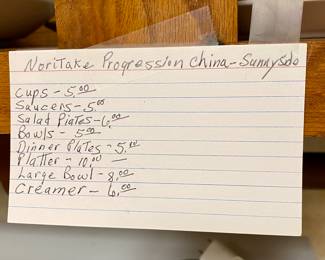 Noritake Progression China - Sunnyside
Cups - 5.00
Saucers - 5.00
Salad Plates - 6.00
Bowls - 5.00
Dinner Plates - 5.00
Platter - 10.00 —
Large Bowl - 8.00
Creamer - 6.00